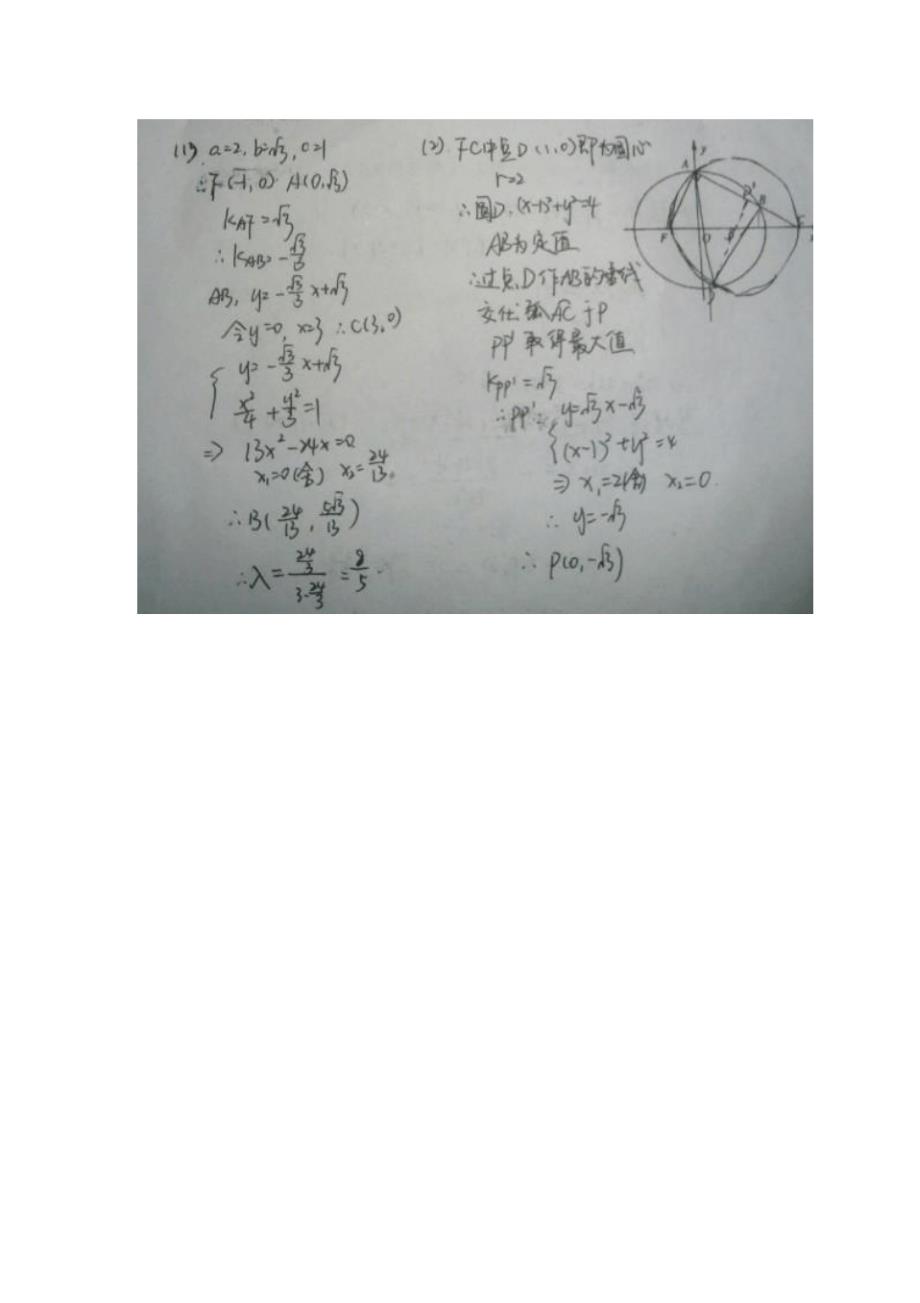 (1) a=2, b=√3, c=1
∴F(-1,0) A(0,√3)
K_AF=√3
∴K_AB=-√3/3
AB, y=-√3/3 x+√3
令y=0, x=3 ∴C(3,0)
{ y=-√3/3 x+√3
x²/4+y²/3=1
⇒ 13x²-24x=0
x₁=0(舍) x₂=24/13.
∴B(24/13, 5√3/13)
∴λ=(24/3)/(3-24/3)=8/5.
(2). FC中点D(1,0)即为圆心
r=2
∴圆D,(x-1)²+y²=4
AB为定值
∴过点D作AB的垂线
交优弧AC于P
PP'取得最大值
K_PP'=√3
∴PP': y=√3x-√3
{ (x-1)²+y²=4
⇒ x₁=2(舍) x₂=0.
∴ y=-√3
∴ P(0,-√3)
A y
P' B
F O D C x
P